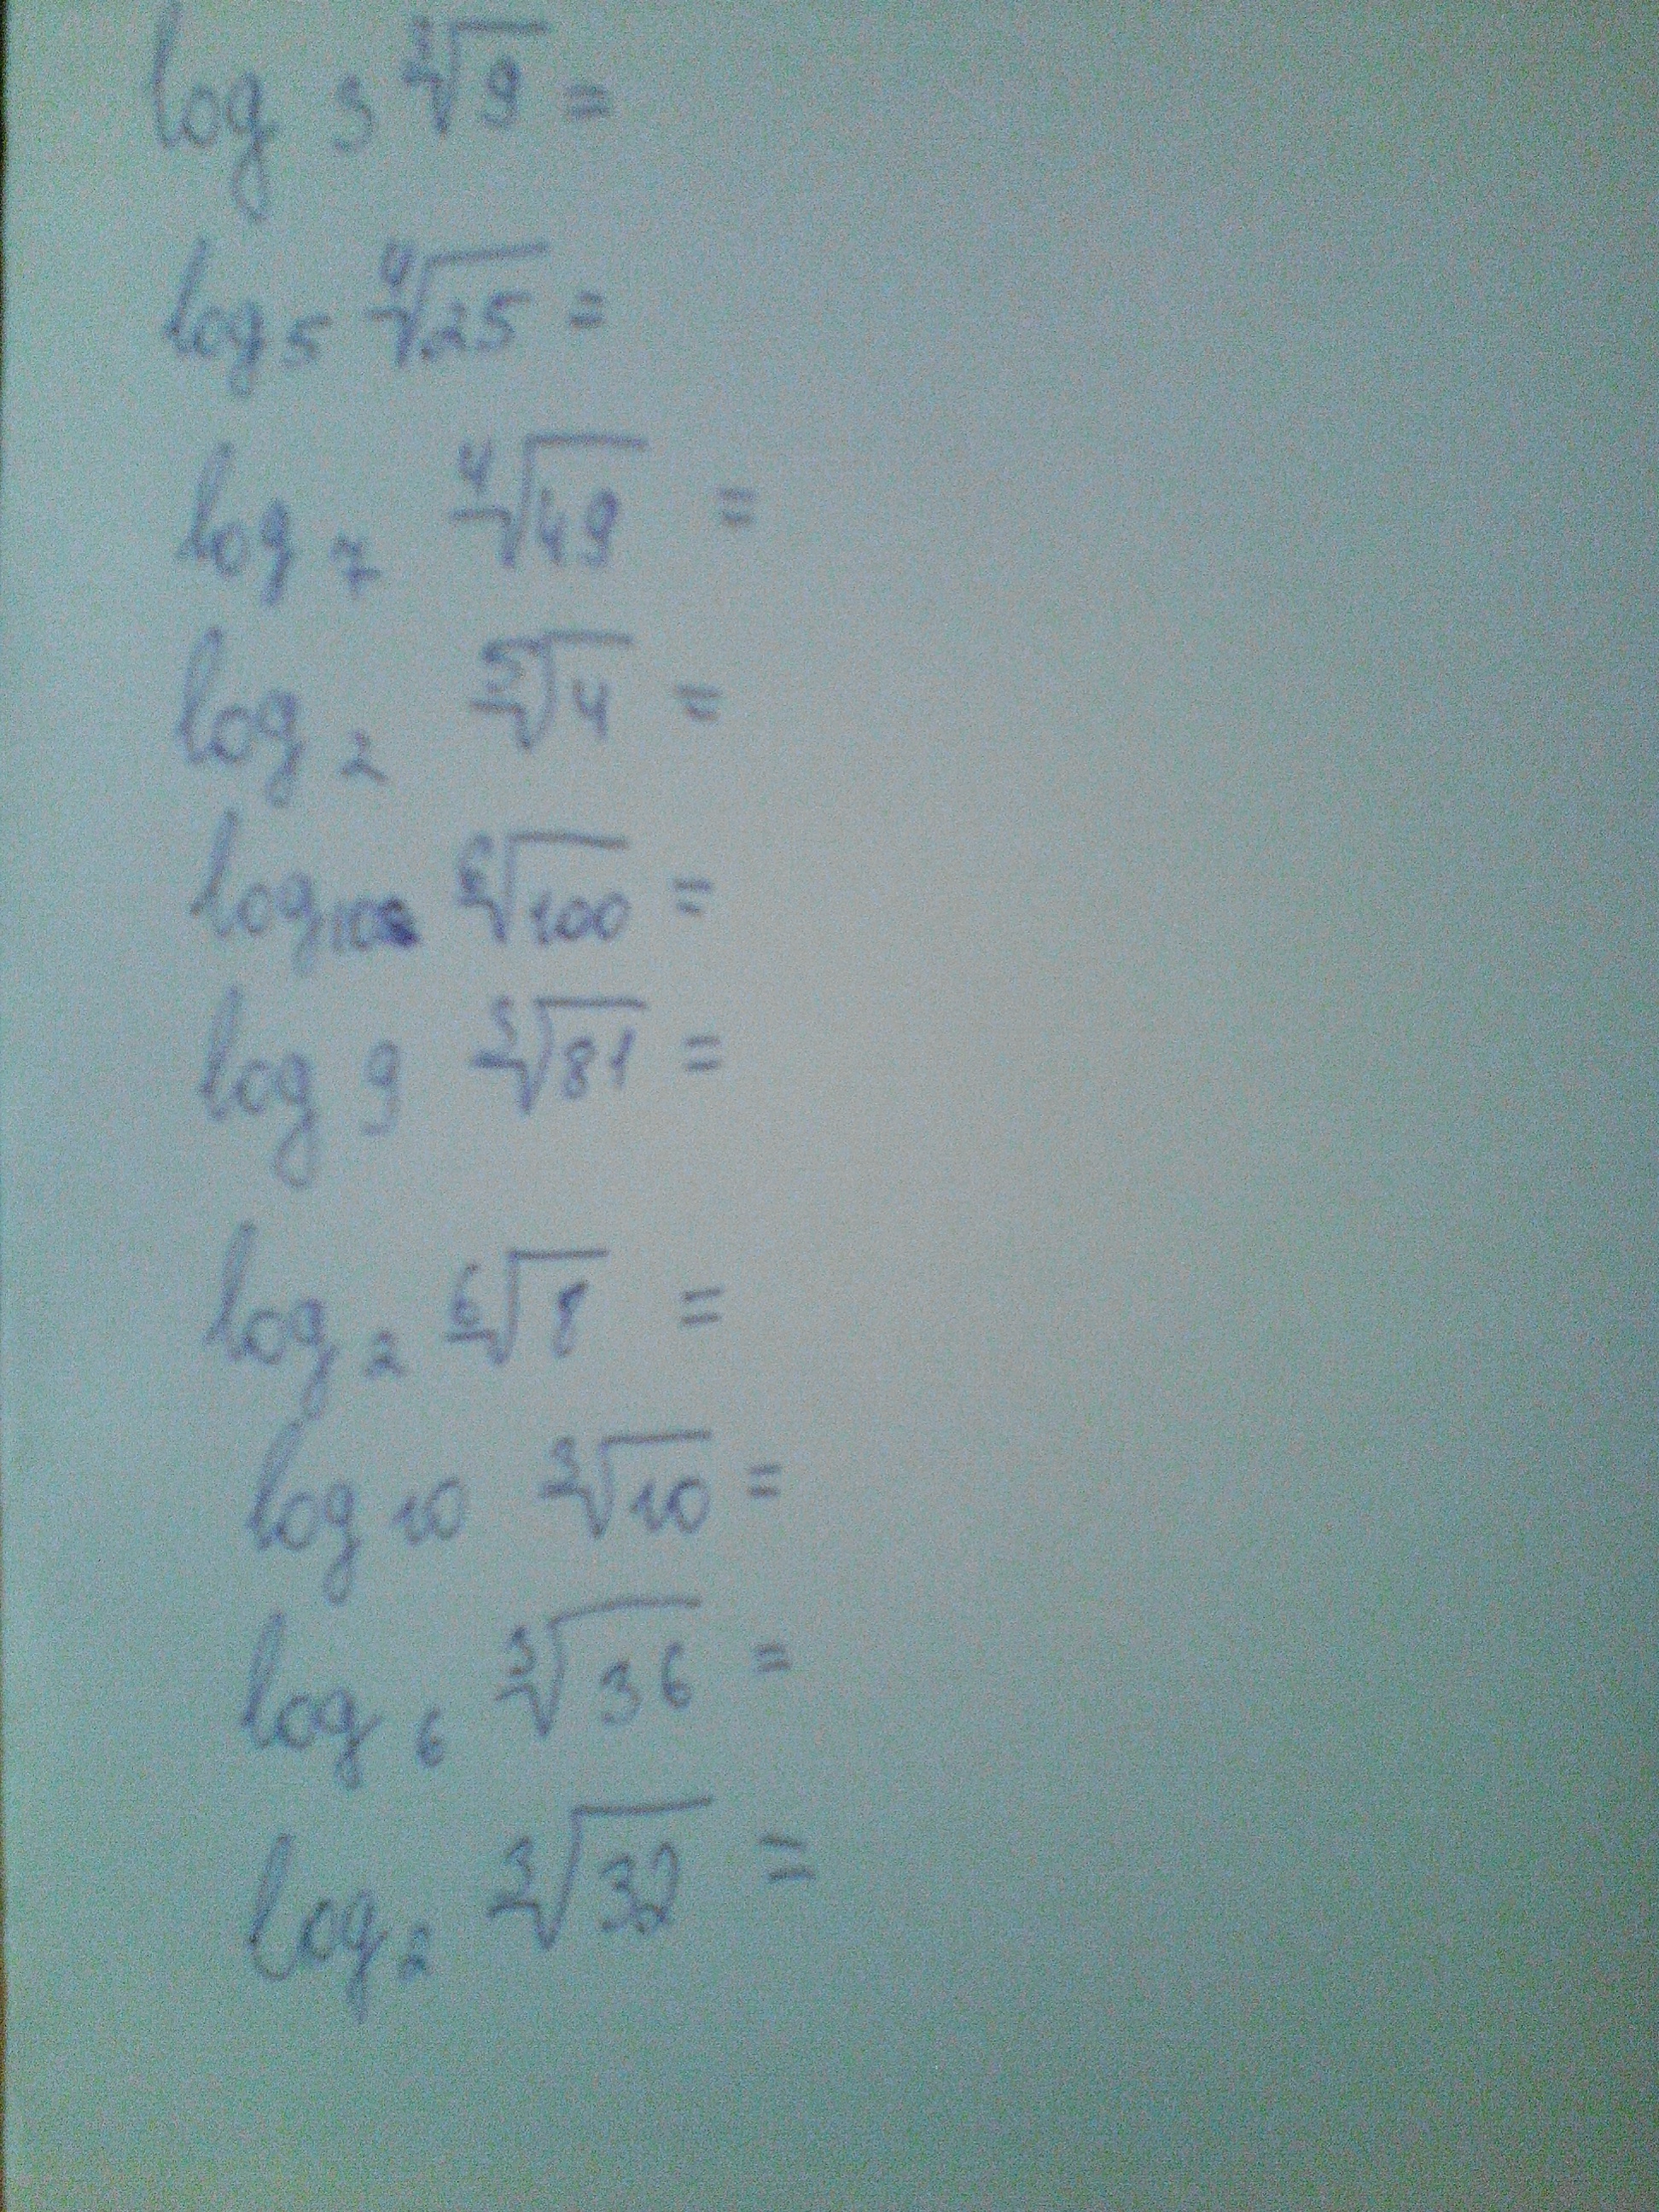 log 3 ∛9 =
log₅ ∜25 =
log₇ ∜49 =
log₂ ⁵√4 =
log₁₀ ⁶√100 =
log 9 ⁵√81 =
log₂ ⁶√8 =
log 10 ∛10 =
log₆ ∛36 =
log₂ ∛32 =